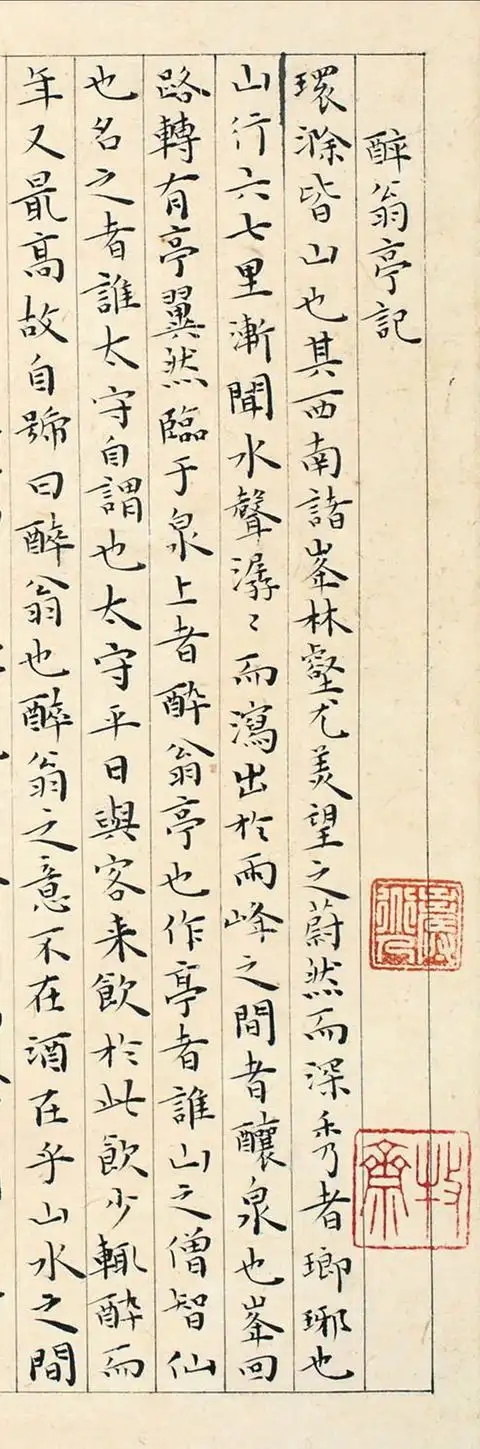 醉翁亭記
環滁皆山也其西南諸峯林壑尤美望之蔚然而深秀者瑯琊也
山行六七里漸聞水聲潺〻而瀉出於兩峰之間者釀泉也峯回
路轉有亭翼然臨于泉上者酔翁亭也作亭者誰山之僧智仙
也名之者誰太守自謂也太守平日與客来飲於此飲少輒酔而
年又最高故自號曰醉翁也醉翁之意不在酒在乎山水之間
牧齋